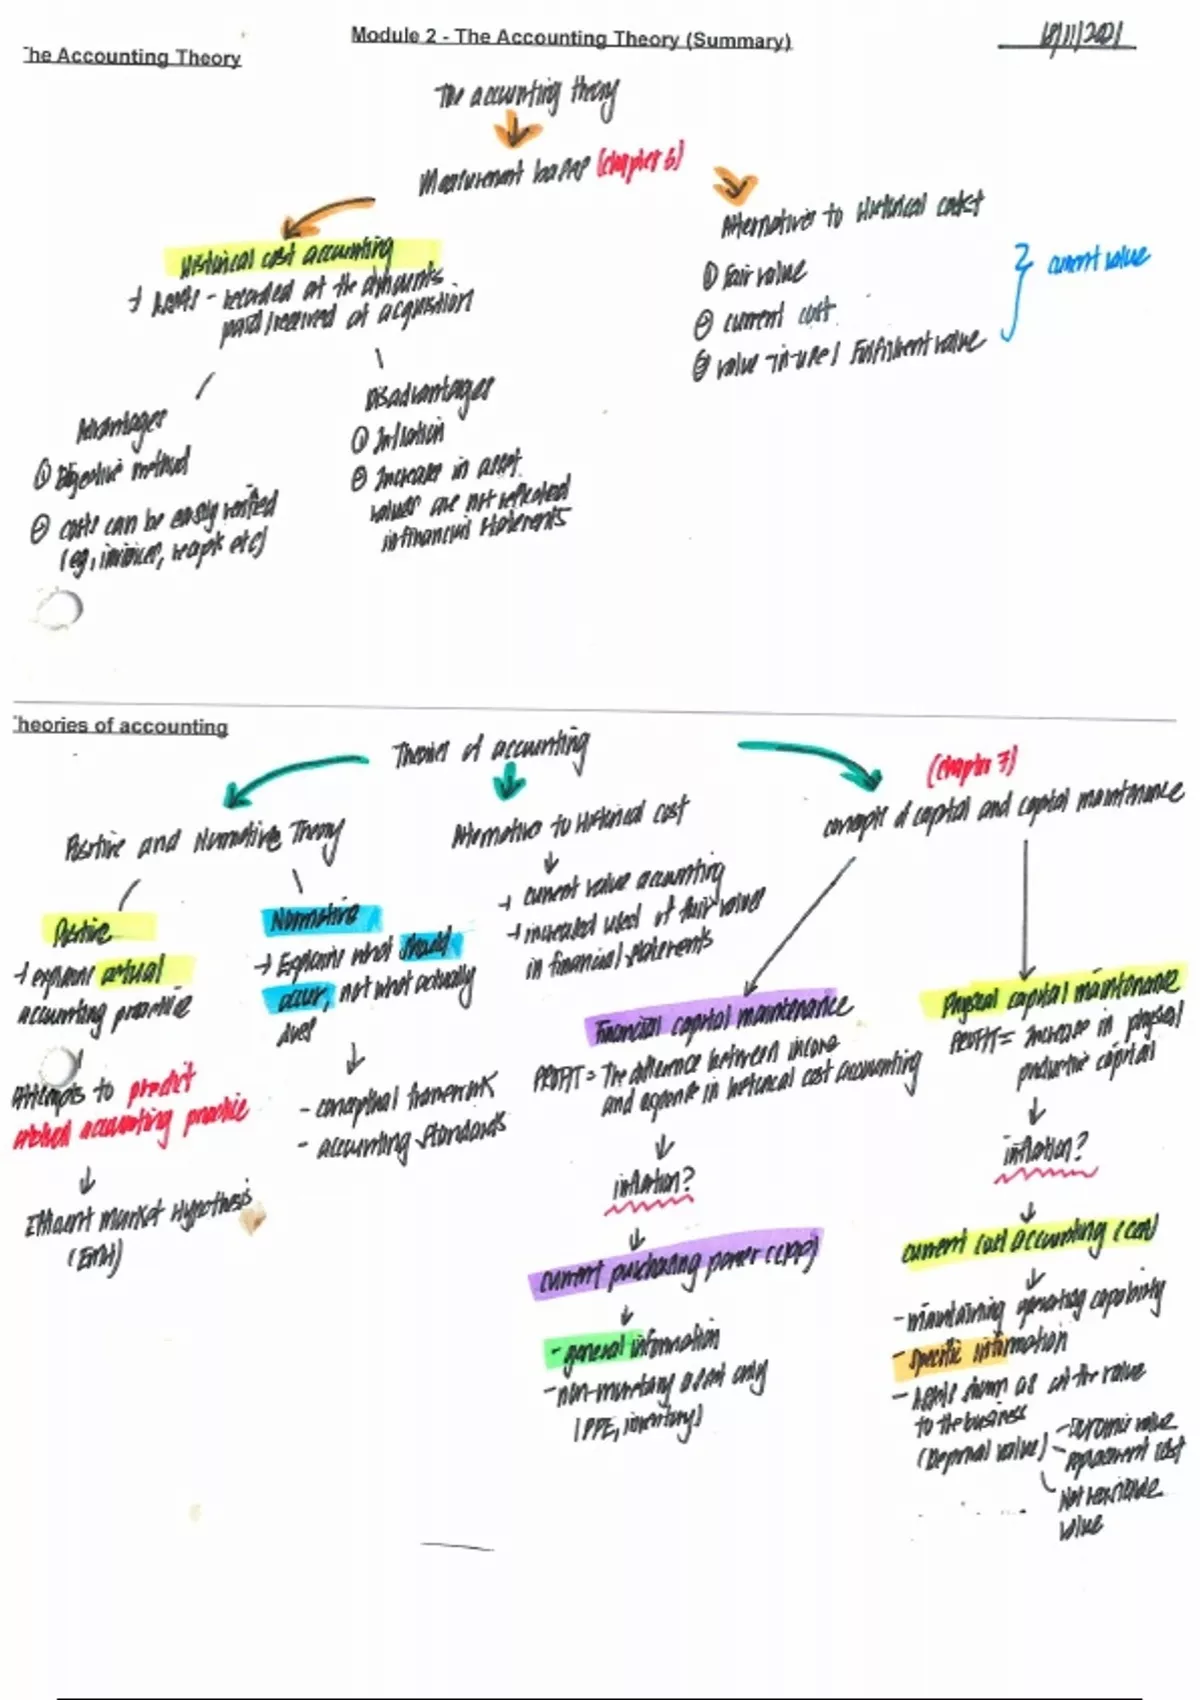 Module 2 - The Accounting Theory (Summary)
he Accounting Theory
The accounting theory
Measurement bases (chapter 6)
Historical cost accounting
→ Assets - recorded at the amounts
paid/received at acquisition
Alternatives to Historical cost
① Fair value
② current cost
③ value-in-use / Fulfilment value
current value
Advantages
① Objective method
② costs can be easily verified
(eg, invoices, receipts etc)
Disadvantages
① Inflation
② Increases in asset
values are not reflected
in financial statements
heories of accounting
Theories of accounting
Positive and Normative Theory
Positive
→ explains actual
accounting practice
Attempts to predict
accounting practice
↓
Efficient Market Hypothesis
(EMH)
Normative
→ Explains what should
occur, not what actually
does
↓
- conceptual framework
- accounting standards
Alternatives to Historical cost
↓
→ current value accounting
→ increased used of fair values
in financial statements
(chapter 7)
concepts of capital and capital maintenance
Financial capital maintenance
PROFIT = The difference between income
and expense in historical cost accounting
↓
inflation?
↓
current purchasing power (CPP)
↓
- general information
- non-monetary asset only
(PPE, inventory)
Physical capital maintenance
PROFIT = Increase in physical
productive capital
↓
inflation?
↓
current cost accounting (CCA)
↓
- maintaining operating capability
- specific information
- Assets shown as at the value
to the business
(Deprival value)
- Economic value
- replacement cost
Net realisable
value